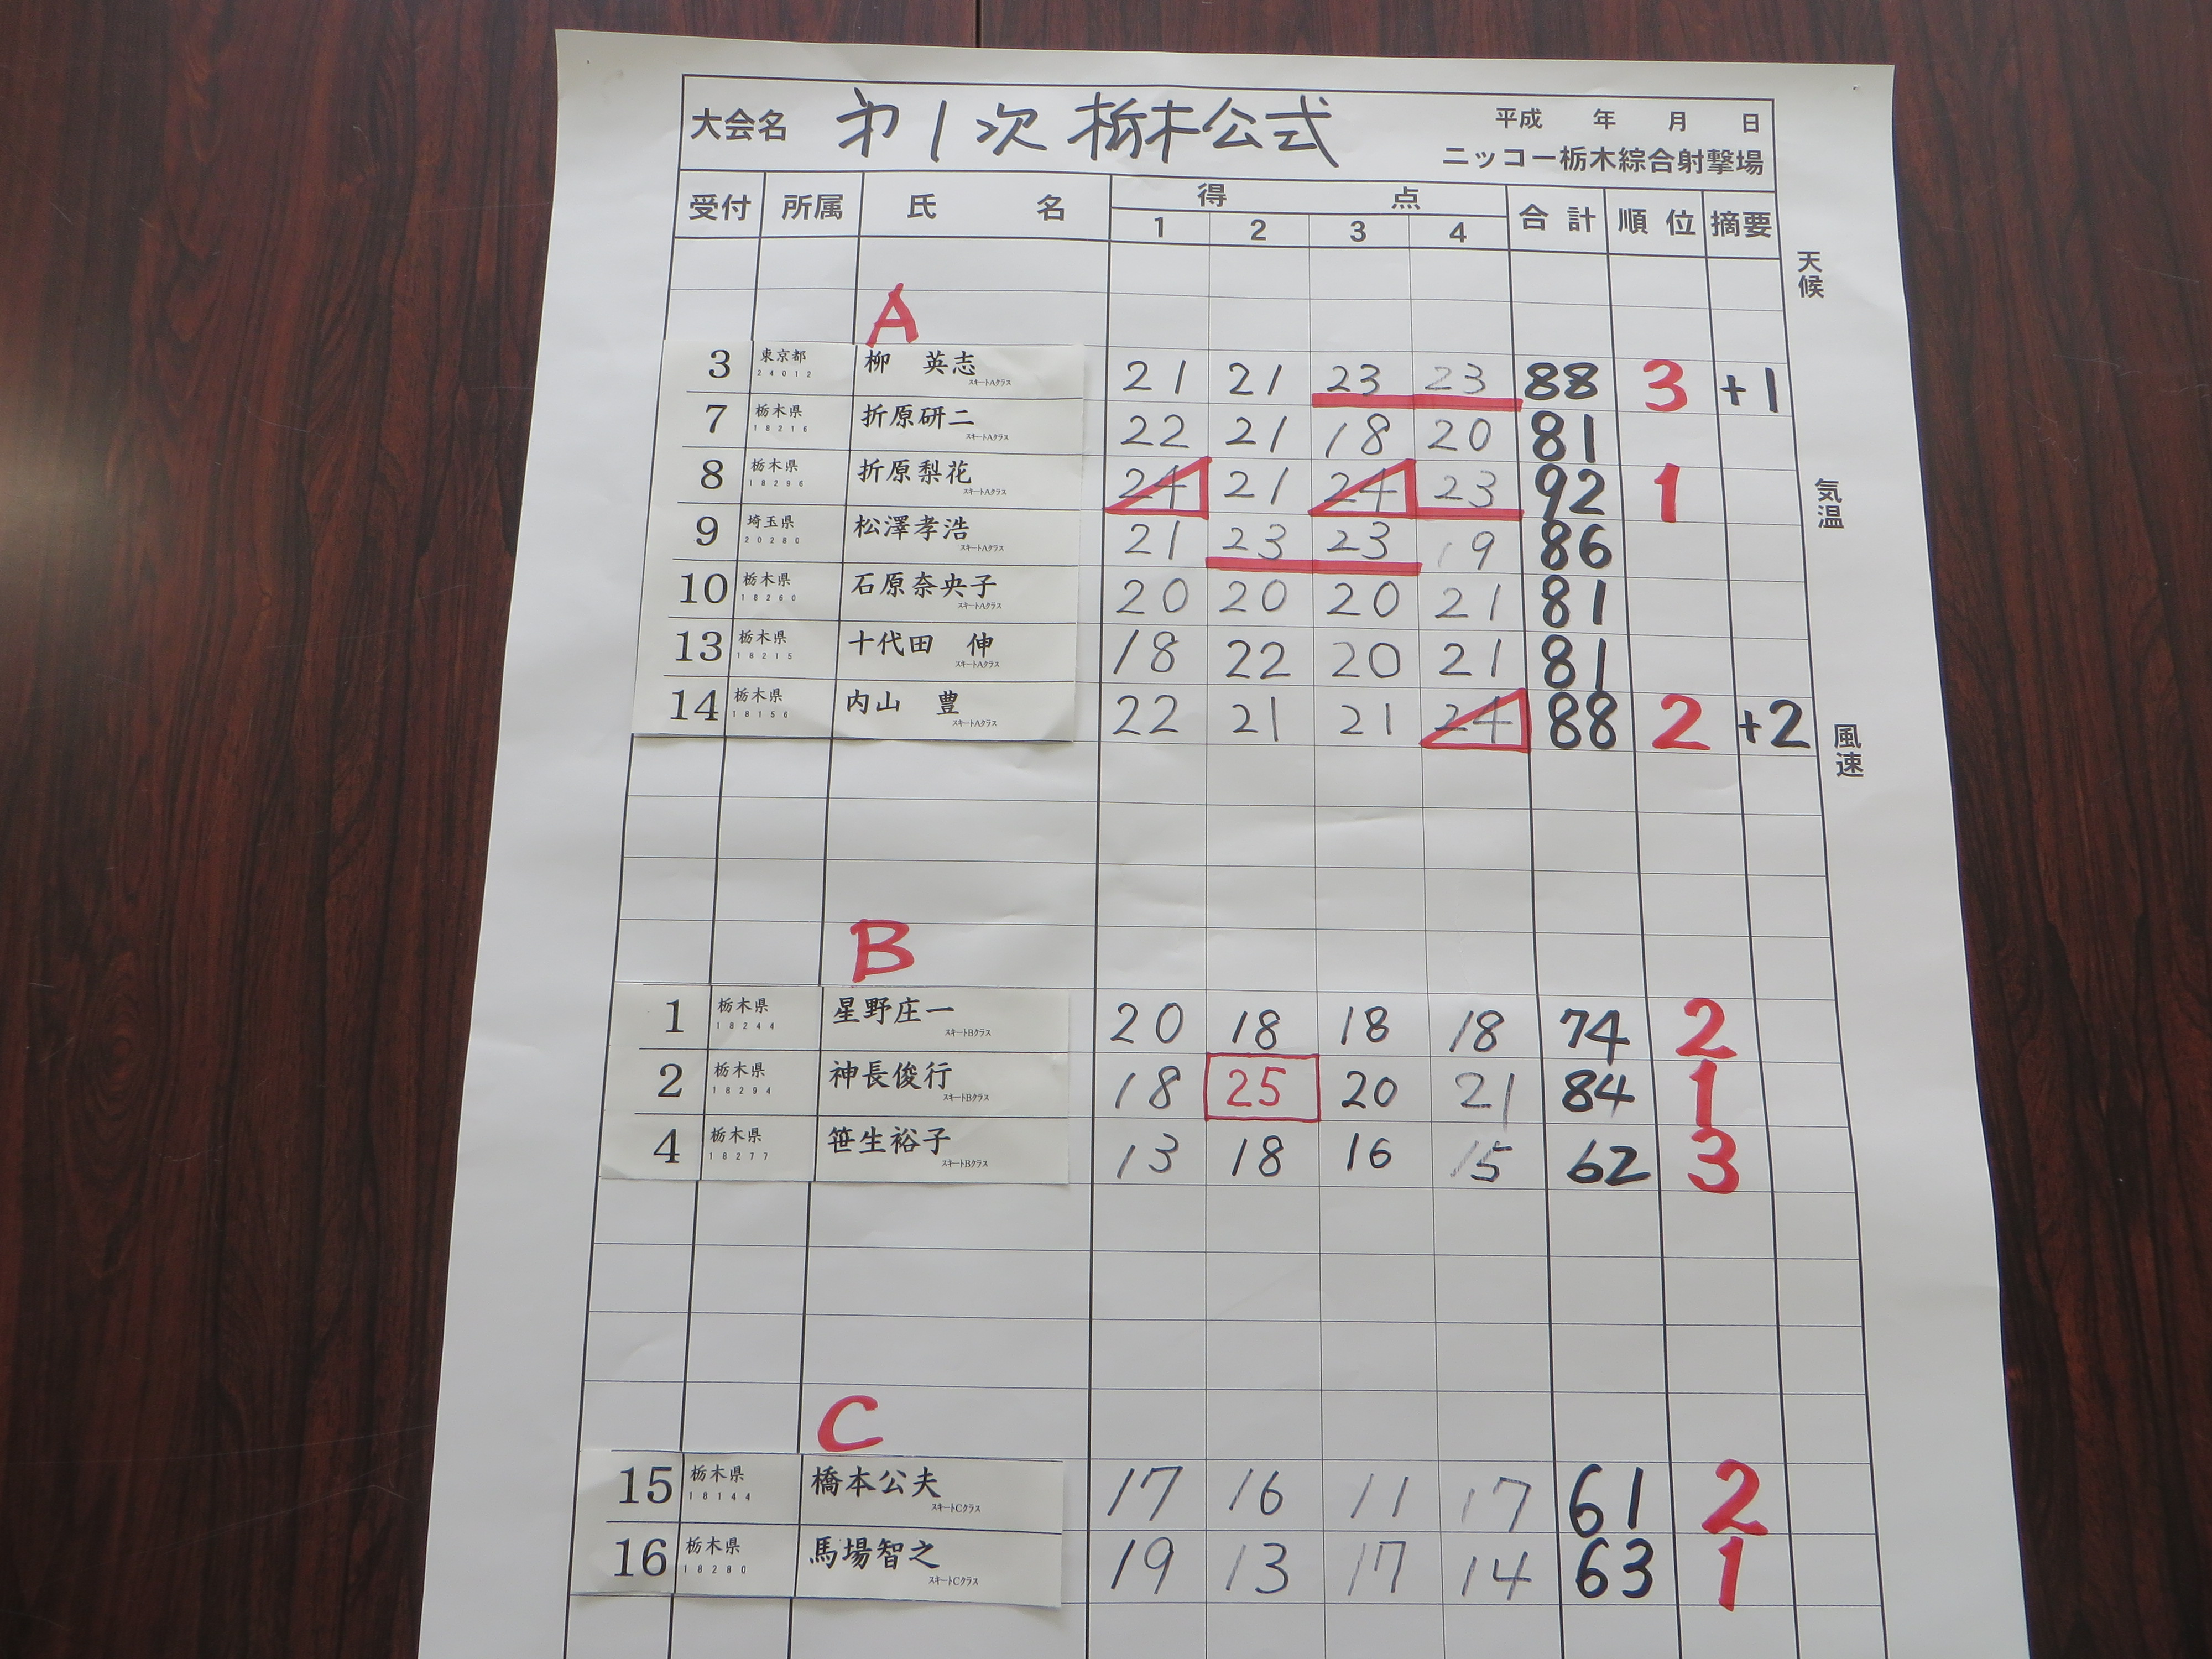 大会名 㐧1次 栃木公式 平成 年 月 日
ニッコー栃木綜合射撃場
受付 所属 氏 名 得 点 合計 順位 摘要
1 2 3 4
天候
A
3 東京都 24012 柳 英志 スキートAクラス 21 21 23 23 88 3 +1
7 栃木県 18216 折原研二 スキートAクラス 22 21 18 20 81
8 栃木県 18296 折原梨花 スキートAクラス 24 21 24 23 92 1
気温
9 埼玉県 20280 松澤孝浩 スキートAクラス 21 23 23 19 86
10 栃木県 18260 石原奈央子 スキートAクラス 20 20 20 21 81
13 栃木県 18215 十代田 伸 スキートAクラス 18 22 20 21 81
14 栃木県 18156 内山 豊 スキートAクラス 22 21 21 24 88 2 +2
風速
B
1 栃木県 18244 星野庄一 スキートBクラス 20 18 18 18 74 2
2 栃木県 18294 神長俊行 スキートBクラス 18 25 20 21 84 1
4 栃木県 18277 笹生裕子 スキートBクラス 13 18 16 15 62 3
C
15 栃木県 18144 橋本公夫 スキートCクラス 17 16 11 17 61 2
16 栃木県 18280 馬場智之 スキートCクラス 19 13 17 14 63 1